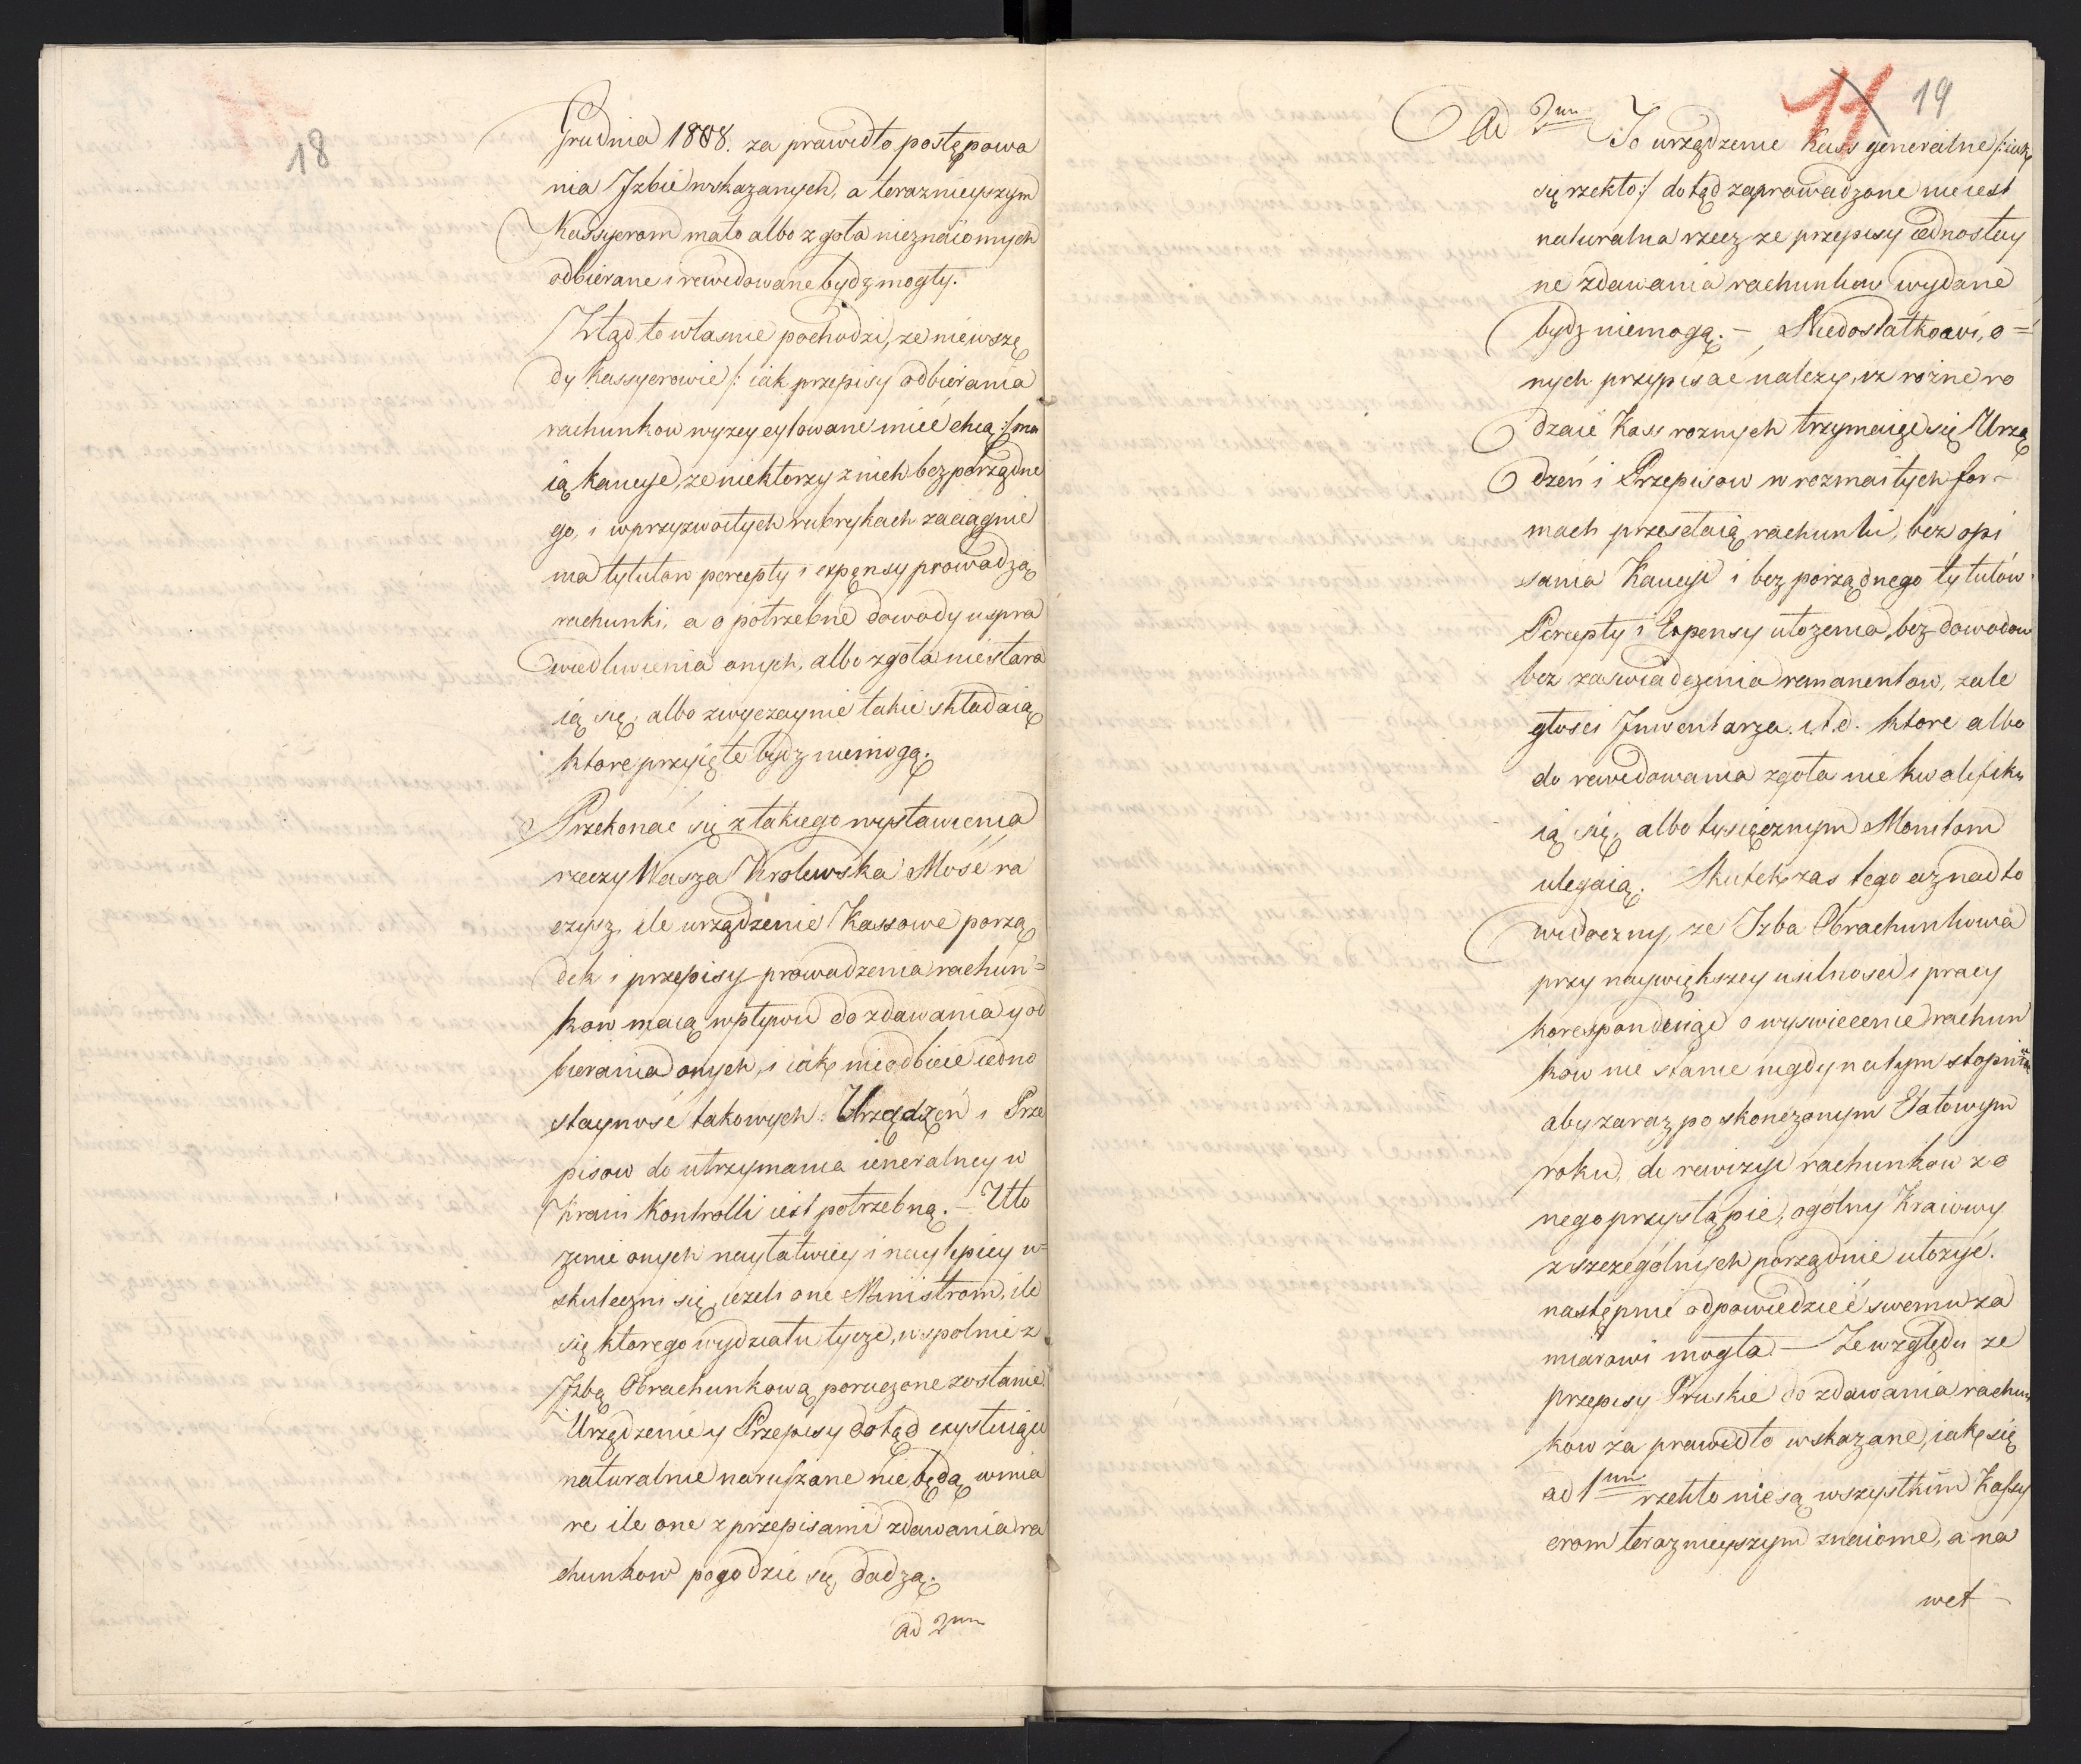 18
Grudnia 1808. za prawidło postępowa
nia Jzbie wskazanych, a teraznieyszym
Kassyerom mało albo zgoła nieznaiomych
odbierane i rewidowane bydz mogły.
Ztąd to własnie pochodzi, ze niewszę
dy Kassyerowie /: iak przepisy odbierania
rachunkow wyzey cytowane mieć chcą :/ ma
ią kaucye, ze niektorzy z nich bez porządne
go, i wprzyzwoitych rubrykach zaciągnie
nia tytułow percepty i expensy prowadzą
rachunki, a o potrzebne dowody uspra
wiedliwienia onych, albo zgoła niestara
ią się, albo zwyczaynie takie składaią
ktore przyięte bydz niemogą.
Przekonać się z takiego wystawienia
rzeczy Wasza Krolewska Mość ra
czysz, ile urządzenie Kassowe porzą
dek i przepisy prowadzenia rachun=
kow maią wpływu do zdawania y od
bierania onych, i iak nieodbicie iedno
staynosć takowych Urządzeń i Prze
pisow do utrzymania ieneralney w
Kraiu Kontrolli iest potrzebną. – Uło
zenie onych naytatwiey i naylepiey u=
skuteczni się, iezeli one Ministrom, ile
się ktorego wydziału tycze, wspolnie z
Jzbą Obrachunkową poruczone zostanie.
Urządzenie y Przepisy dotąd exystuiące
naturalnie naruszane nie będą, wmia
re ile one z przepisami zdawania ra
chunkow pogodzić się dadzą.
ad 2um
11 19
Ad 2um Jo urządzenie Kass generalne /: iak
się rzekło :/ dotąd zaprowadzone nieiest
naturalna rzecz ze przepisy iednostay
ne zdawania rachunkow wydane
bydz niemogą. – Niedostatkowi, o=
nych przypisać nalezy, iz rozne ro
dzaie Kass roznych trzymaiąc się Urzą
dzeń i Przepisow w rozmaitych for=
mach przesełaią rachunki, bez opi
sania Kaucyi i bez porządnego tytułów
Percepty i Expensy ułozenia, bez dowodow
bez zaswiadczenia remanentow, zale
głosci Jnwentarza. i t. d. ktore albo
do rewidowania zgoła nie kwalifiku
ią się, albo tysiącznym Monitom
ulegaią. Skutek zas tego aznadto
widoczny, ze Jzba Obrachunkowa
przy naywiększey usilnosci i pracy
koresponduiąc o wyswiecenie rachun
kow nie stanie nigdy na tym stopniu
aby zaraz po skonczonym Etatowym
roku, do rewizyi rachunkow z o
nego przystąpić, ogólny Kraiowy
z szczególnych porządnie ułozyć.
następnie odpowiedzieć swemu za
miarowi mogła. – Ze względu ze
przepisy Pruskie do zdawania rachun
kow za prawidło wskazane, iak się
ad 1um rzekło nie są wszystkim Kassy
erom teraznieyszym znaiome, a na
wet –